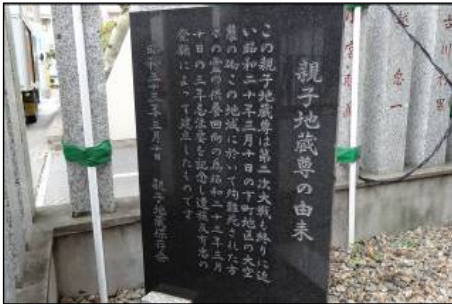 親子地蔵尊の由来
この親子地蔵尊は第二次大戦も終りに近
い昭和二十年三月十日の下町地區の大空
襲の砌この地域に於いて殉難死された方
々の霊の供養回向の為昭和二十二年三月
十日の三年忌法要を記念し遺族及有志の
発願によって建立したものです
昭和二十二年三月十日　親子地蔵保存会